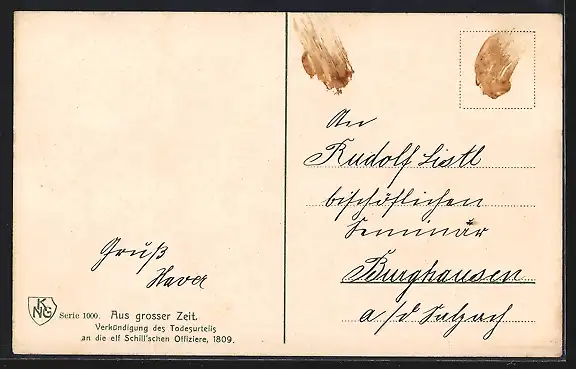 An
Rudolf Listl
bischöflichen
Seminar
Burghausen
a/d Salzach
Gruß
Xaver
KNG
Serie 1000. Aus grosser Zeit.
Verkündigung des Todesurteils
an die elf Schill'schen Offiziere, 1809.